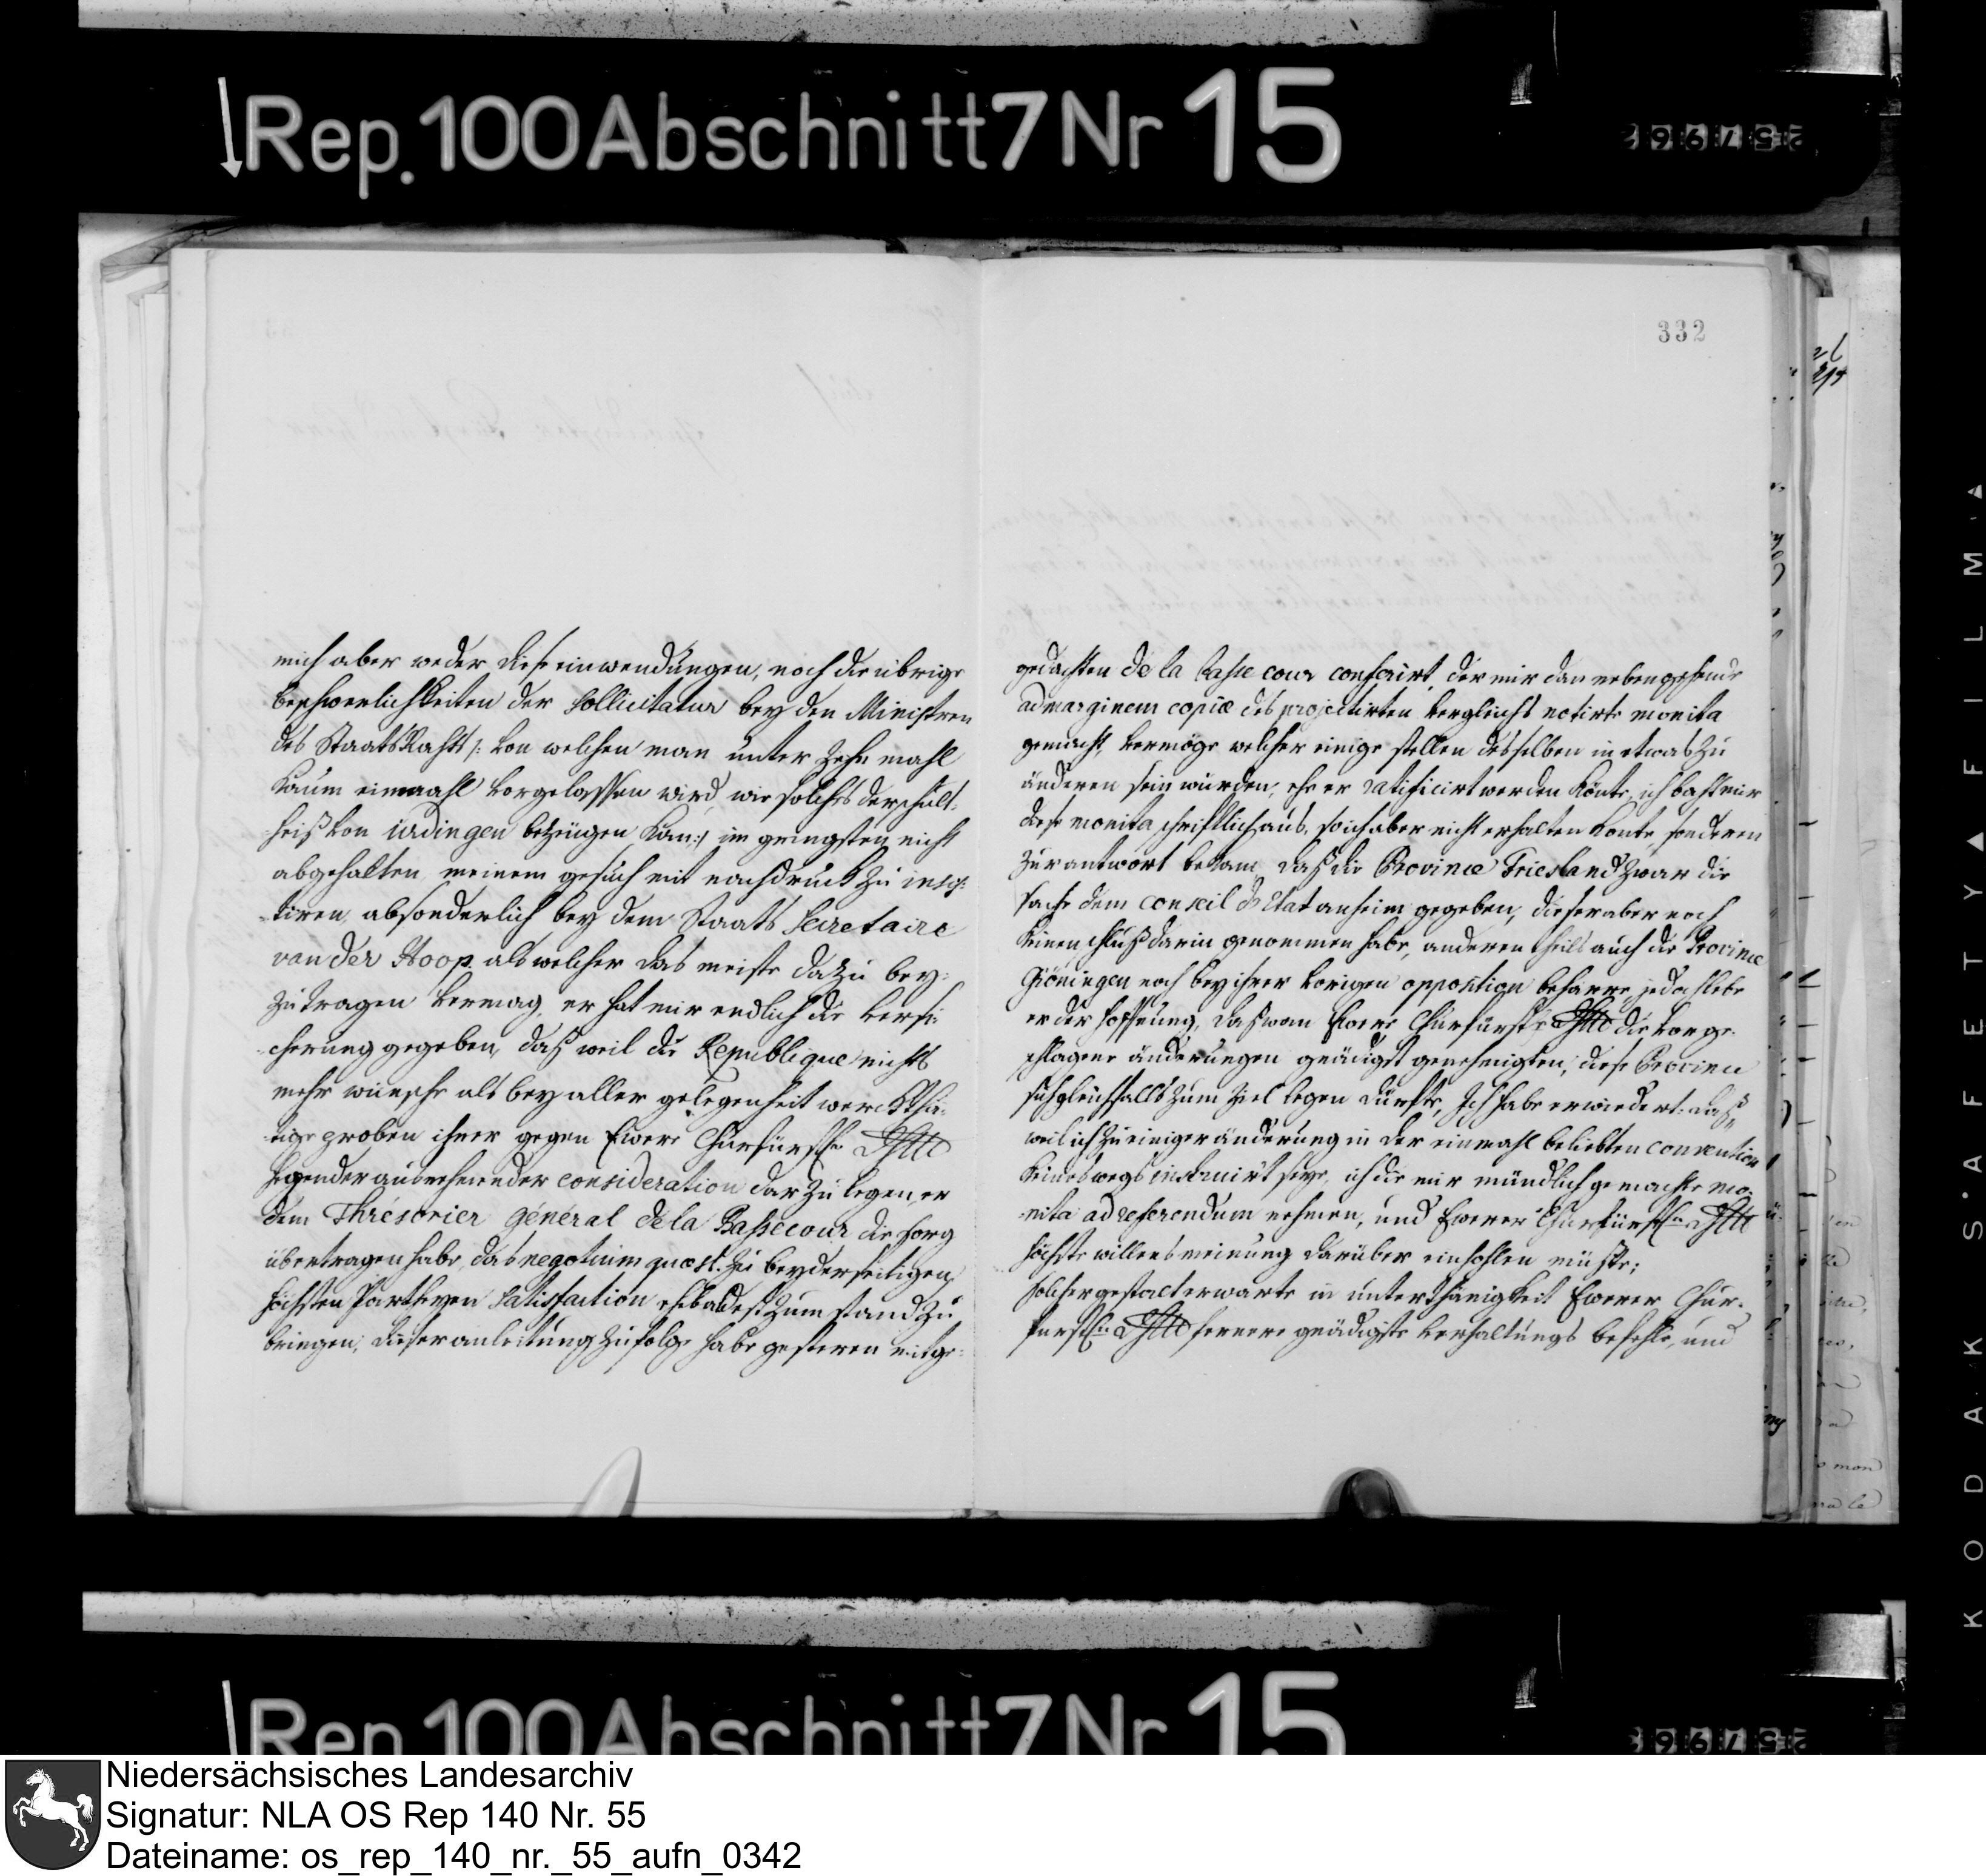 Rep. 100 Abschnitt 7 Nr 15
332
mich aber weder diese einwendungen, noch die übrige
beschwerlichkeiten der Sollicitatur bey den Ministren
des Staats Rahts /: von welchen man unter zehn mahl
kaum einmahl vorgelassen wird, wie solches der schult-
heiß von ürdingen bezeügen kan :/ im geringsten nicht
abgehalten meinem gesuch mit nachdruck zu insis-
tiren, absonderlich bey dem Staats Secretaire
van der Hoop als welcher das meiste dazu bey-
zutragen vermag, er hat mir endlich die versi-
cherung gegeben, daß weil die Republique nichts
mehr wünsche als bey aller gelegenheit werckthä-
tige proben ihrer gegen Ewere Churfürstle Dhtt
hegender ausnehmender consideration darzulegen, er
dem Thrésorier Général de la Bassecour die sorg
übertragen habe, das negotium quaest. zu beyderseitigen
höchsten Partheyen Satisfaction ehebaldest zum stand zu
bringen, dieser anleitung zufolge habe gesteren mitge-
gedachten de la Basse cour conferirt, der mir dan nebengehende
ad marginem copiæ des projectirten Vergleichs notirte monita
gemacht, vermöge welcher einige stellen desselben in etwas zu
änderen sein würden, ehe er ratificirt werden könte, ich baht mir
diese monita schriftlich aus, so ich aber nicht erhalten konte, sonderen
zur antwort bekam, daß die Province Friesland zwar die
sache dem conseil d'Etat anheim gegeben, dieser aber noch
keinen schluß darin genommen habe, anderen theils auch die Province
Gröningen noch bey ihrer vorigen opposition beharre, jedoch lebe
er der hoffnung, daß wan Ewere Churfürstle Dhtt die vorge-
schlagene änderungen gnädigst genehmigten, diese Provinen
sich gleichfalls zum ziel legen dürfte, Ich habe erwiedert: daß
weil ich zu einiger änderung in der einmahl beliebten convention
keineswegs instruirt seye, ich die mir mündlich gemachte mo-
nita ad referendum nehmen, und Ewerer Churfürstln Dhtt
höchste willensmeinung darüber einhohlen müste;
solchergestalt erwarte in unterthänigkeit Ewerer Chur-
fürstln Dhtt fernere gnädigste verhaltungs befehle, und
KODAK S·A F E T Y ▲ F I L M
Rep. 100 Abschnitt 7 Nr 15
Niedersächsisches Landesarchiv
Signatur: NLA OS Rep 140 Nr. 55
Dateiname: os_rep_140_nr._55_aufn_0342